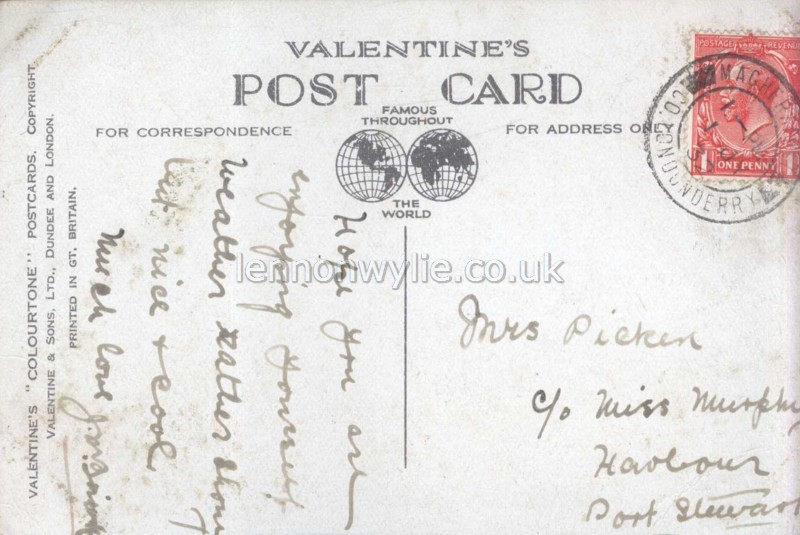 VALENTINE'S
POST CARD
FAMOUS
THROUGHOUT
THE
WORLD
FOR CORRESPONDENCE
FOR ADDRESS ONLY
VALENTINE'S "COLOURTONE" POSTCARDS. COPYRIGHT.
VALENTINE & SONS, LTD., DUNDEE AND LONDON.
PRINTED IN GT. BRITAIN.
Hope you are
enjoying yourself
weather rather
but nice & cool
Much love
Mrs Picken
c/o Miss Murphy
Harbour
Port Stewart
POSTAGE REVENUE
1 ONE PENNY 1
CO. LONDONDERRY
lennonwylie.co.uk